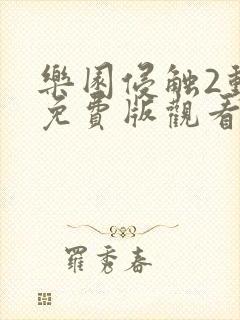 樂園侵触2動
免費版觀看
羅秀春